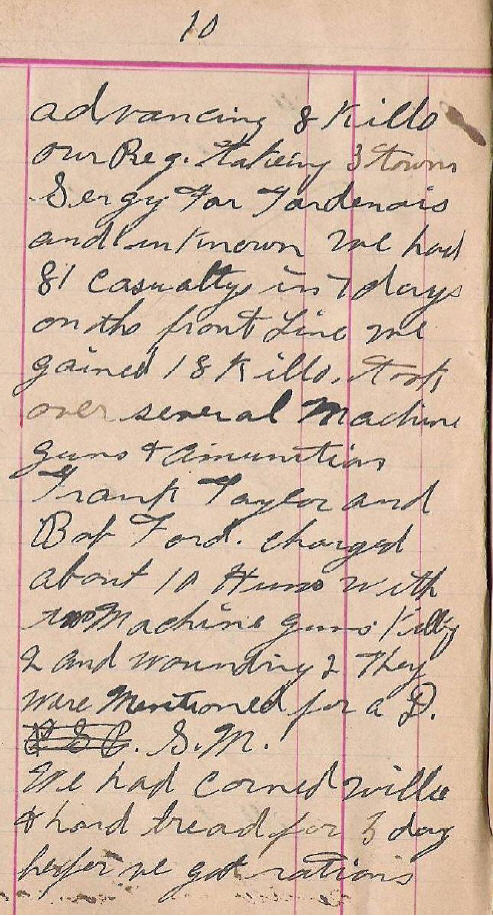 10
advancing 8 Killo
our Reg. taking 3 towns
Sergy Far Tardenois
and unknown we had
81 casualty in 7 days
on the front Line we
gained 18 Killo, took
over several Machine
guns & amunition
Frank Taylor and
Bob Ford. charged
about 10 Huns with
Machine guns killg
2 and wounding 2 They
were Mentioned for a D.
D S C. S. M.
We had corned willie
& hard bread for 3 day
befor we got rations